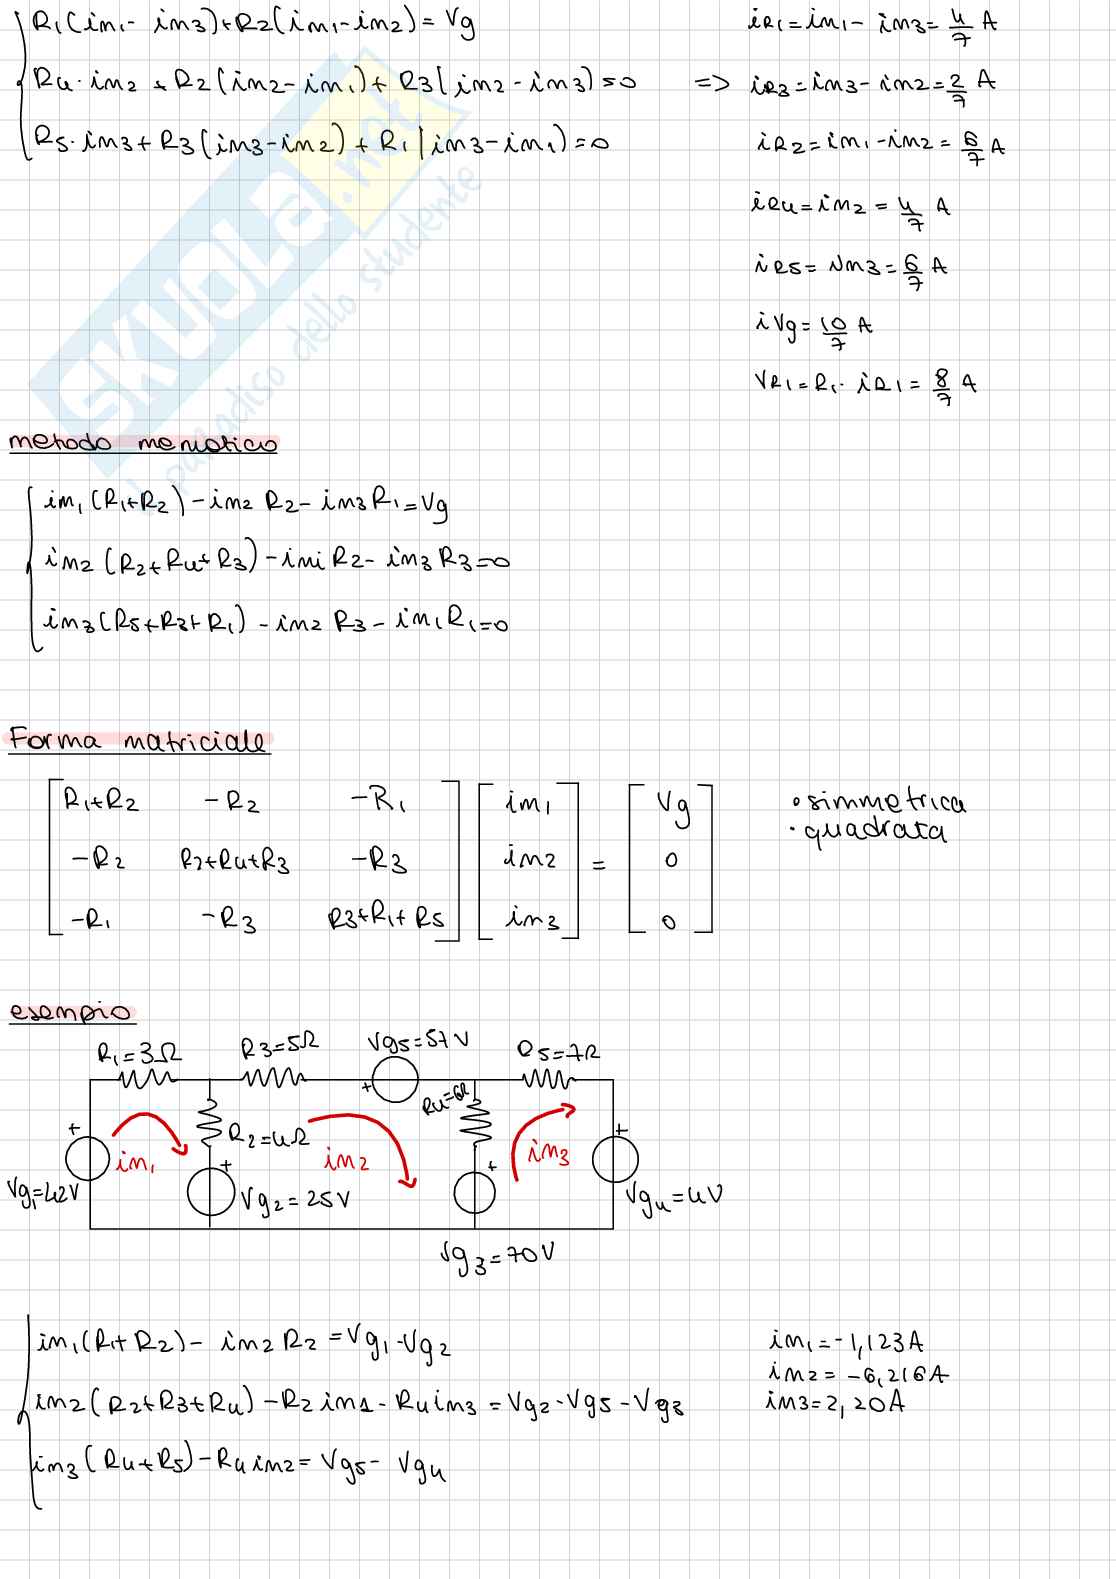 R1(im1 - im3)+R2(im1-im2)= Vg
R4·im2 + R2(im2-im1)+ R3(im2-im3)=0
R5·im3+R3(im3-im2)+ R1(im3-im1)=0
iR1=im1- im3= 4/7 A
=> iR3=im3-im2=2/7 A
iR2=im1-im2= 6/7 A
iR4=im2 = 4/7 A
iR5= im3=6/7 A
iVg=10/7 A
VR1=R1· iR1= 8/7 A
SKUOLA.net
il paradiso dello studente
metodo mematico
im1(R1+R2)-im2 R2- im3R1=Vg
im2(R2+R4+R3)-im1R2- im3R3=0
im3(R5+R3+R1)-im2 R3- im1R1=0
Forma matriciale
R1+R2 -R2 -R1 im1 Vg
-R2 R2+R4+R3 -R3 im2 = 0
-R1 -R3 R3+R1+R5 im3 0
• simmetrica
• quadrata
esempio
R1=3Ω R3=5Ω Vg5=57V R5=7Ω
+ R4=6Ω
+ R2=4Ω +
im1 im2 im3
+ +
Vg1=42V Vg2=25V Vg4=4V
Vg3=70V
im1(R1+R2)- im2R2=Vg1-Vg2
im2(R2+R3+R4)-R2im1-R4im3=Vg2-Vg5-Vg3
im3(R4+R5)-R4im2= Vg5- Vg4
im1=-1,123A
im2= -6,216A
im3=2,20A